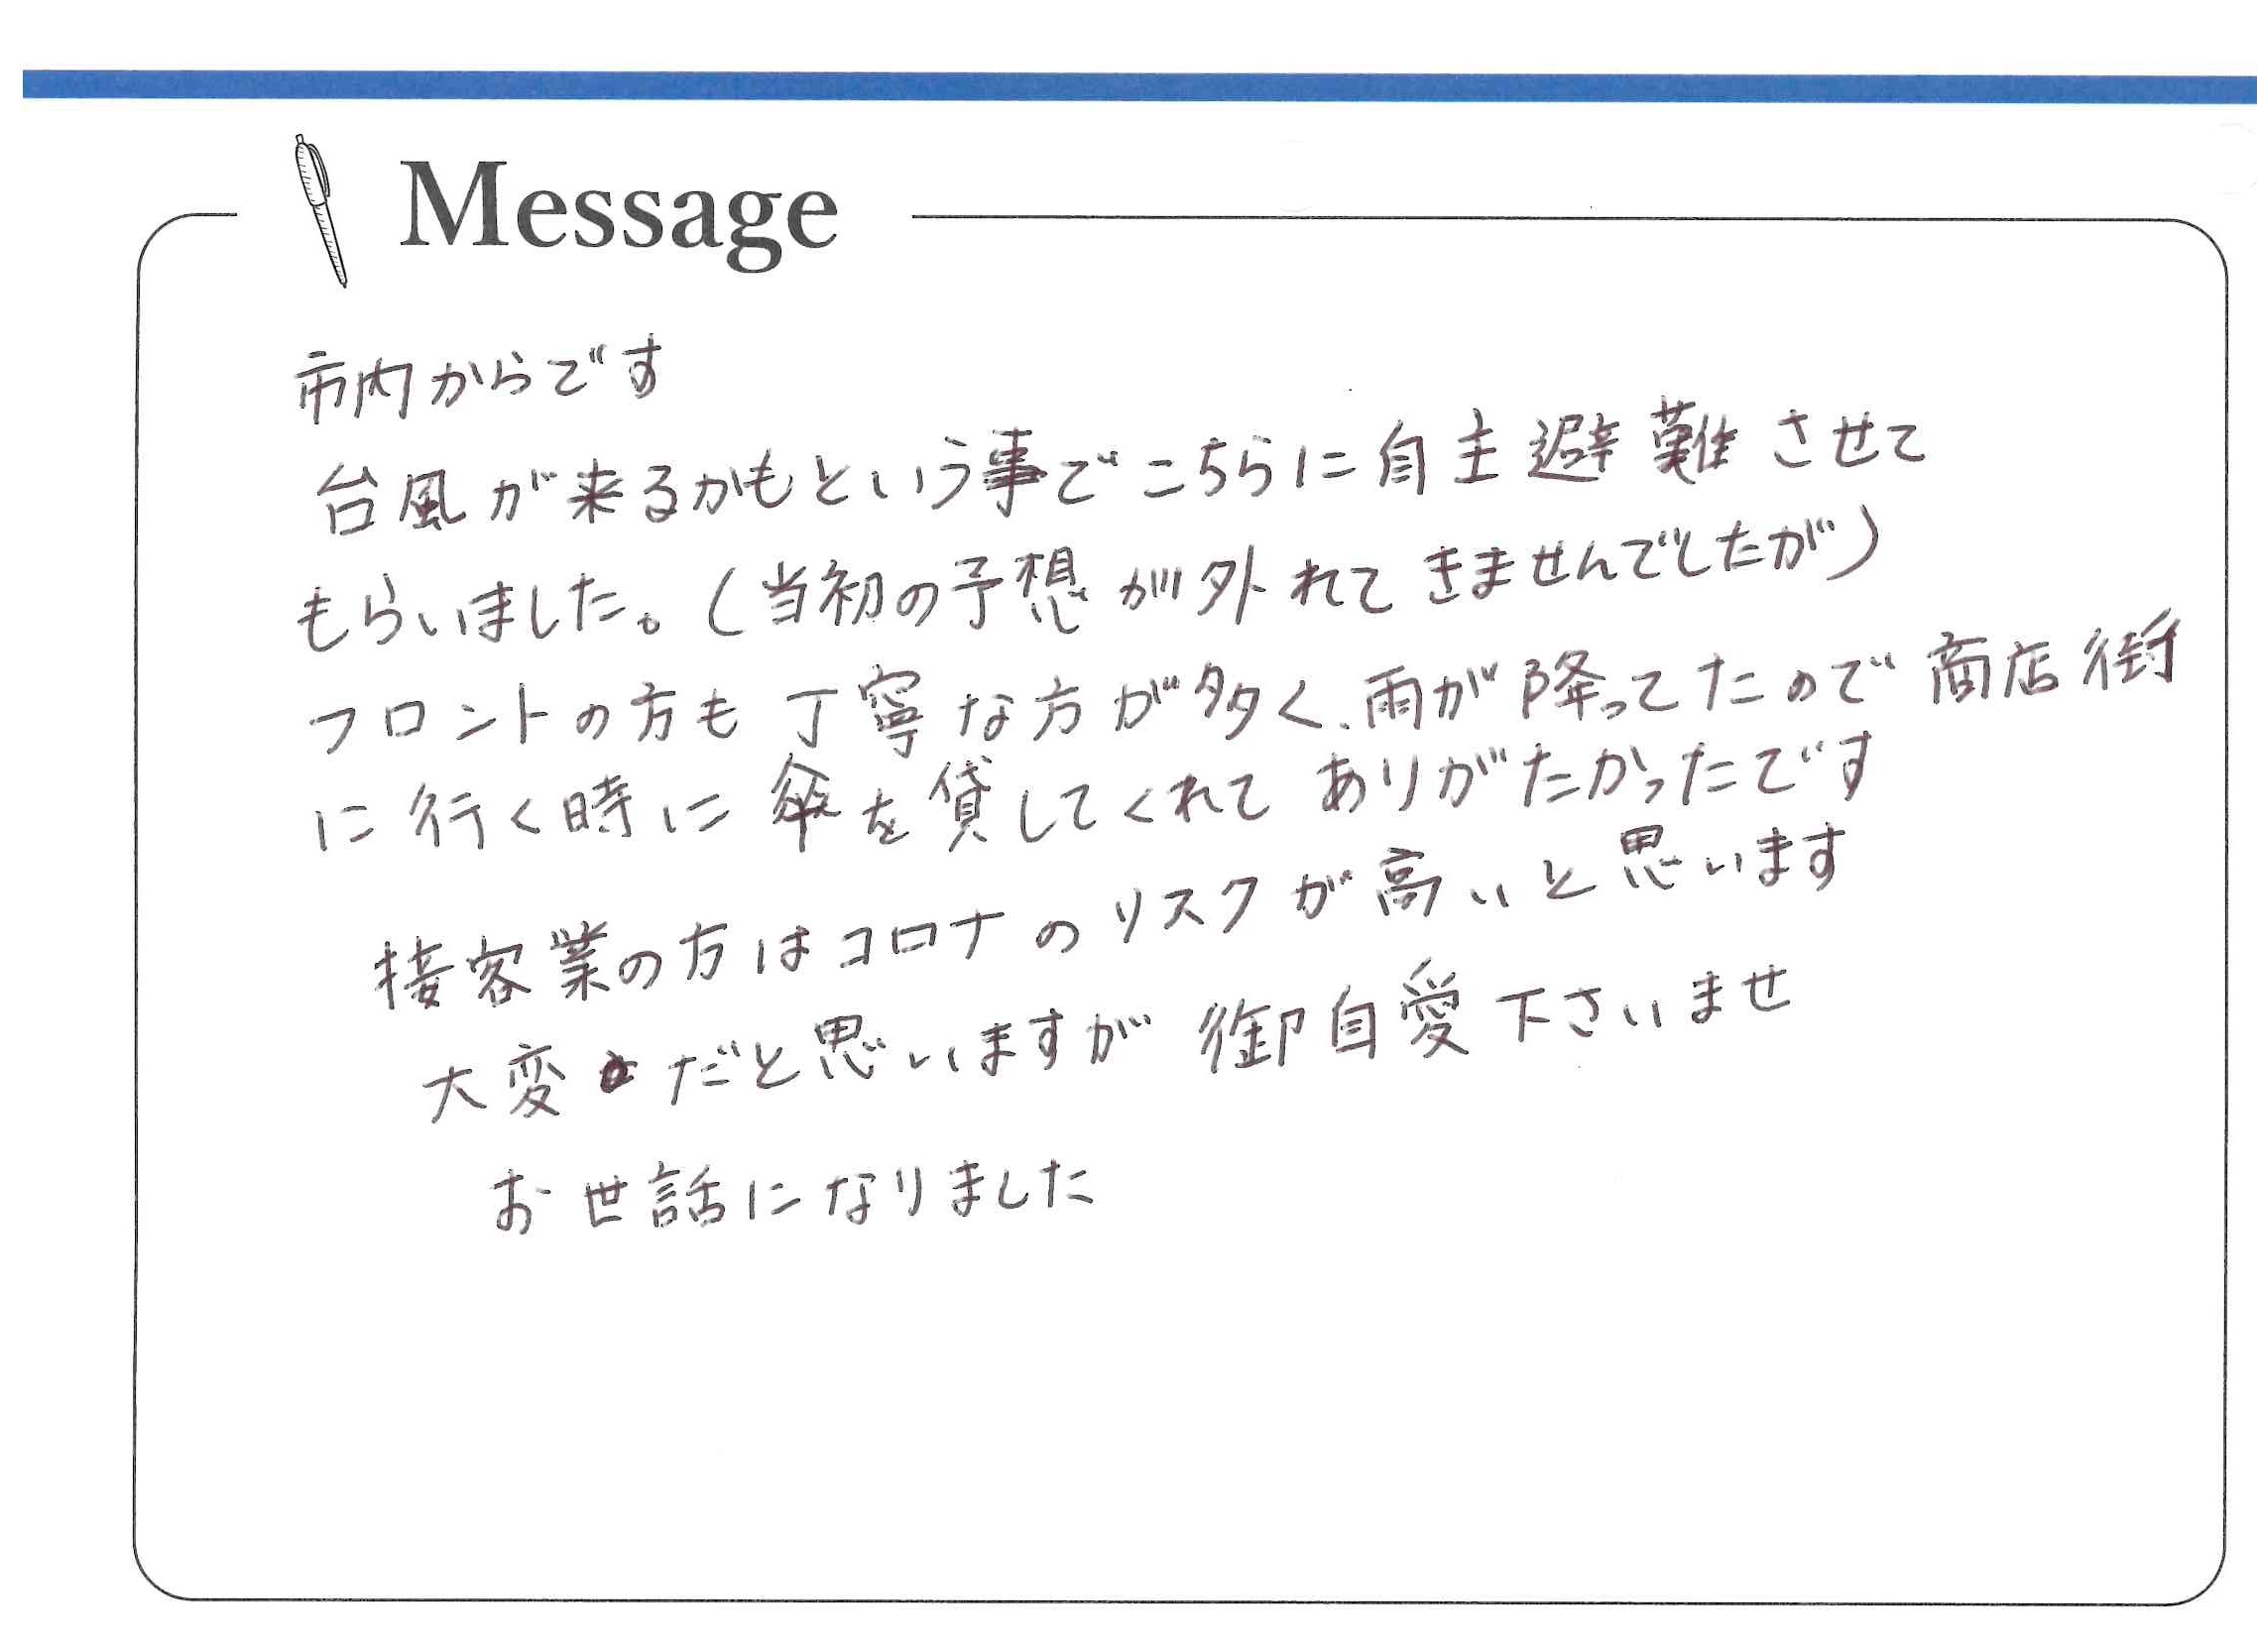 Message
市内からです
台風が来るかもという事でこちらに自主避難させて
もらいました。(当初の予想が外れてきませんでしたが)
フロントの方も丁寧な方が多く、雨が降ってたので商店街
に行く時に傘を貸してくれてありがたかったです
接客業の方はコロナのリスクが高いと思います
大変だと思いますが御自愛下さいませ
お世話になりました